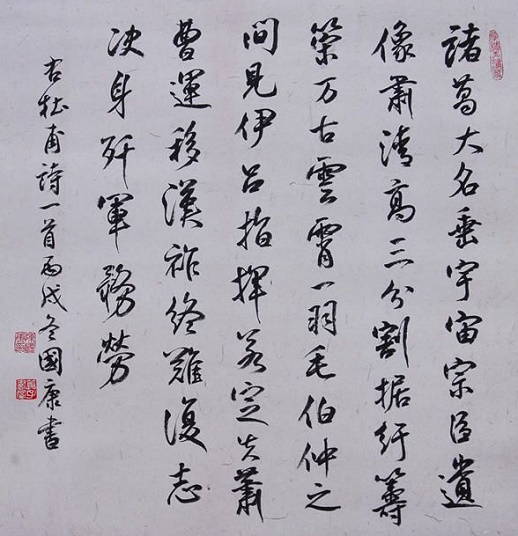 諸葛大名垂宇宙宗臣遺
像肅清高三分割據紆籌
策万古雲霄一羽毛伯仲之
間見伊吕指揮若定失蕭
曹運移漢祚終難復志
决身歼軍務勞
古杜甫詩一首丙戌冬國康書